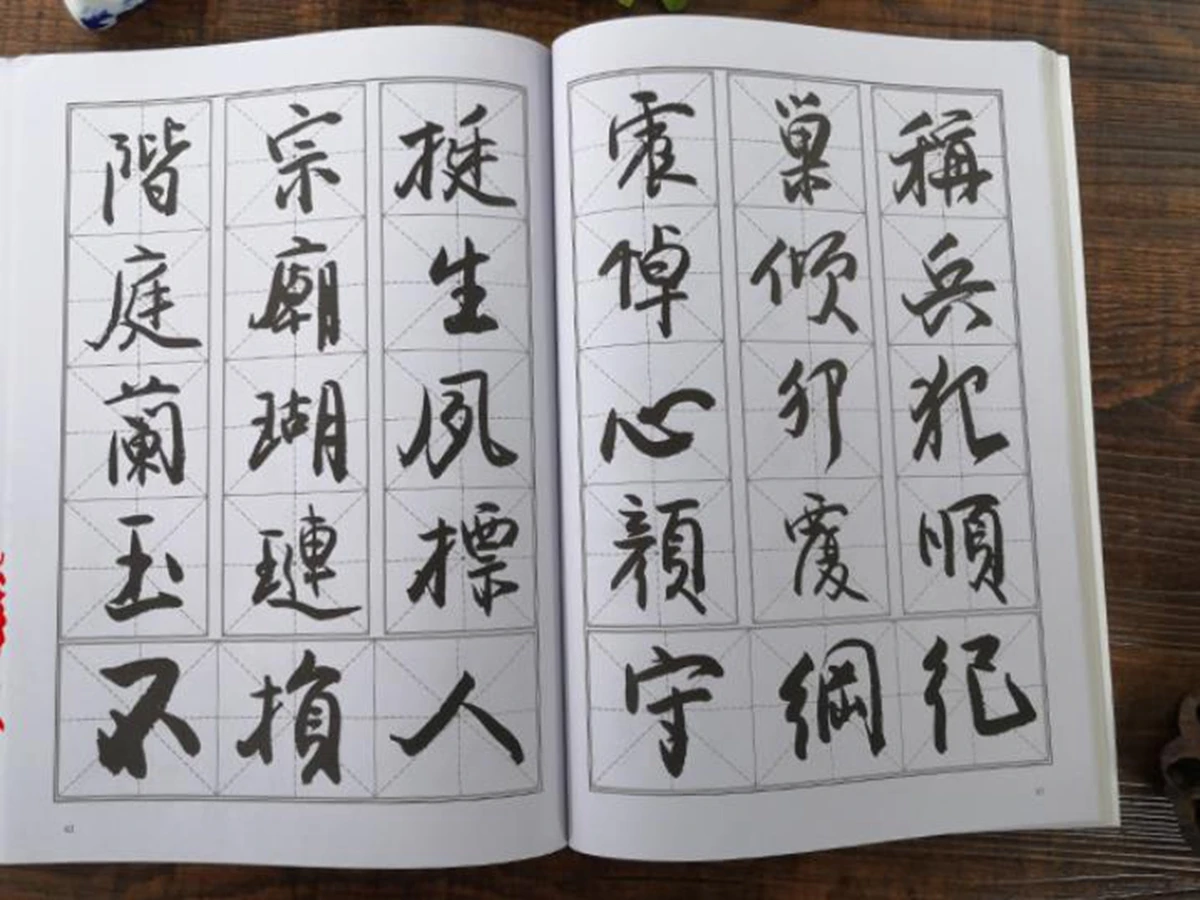 挺生夙標
宗廟瑚璉
階庭蘭玉
人損不
稱兵犯順
巢傾卵覆
震悼心顏
紀綱守